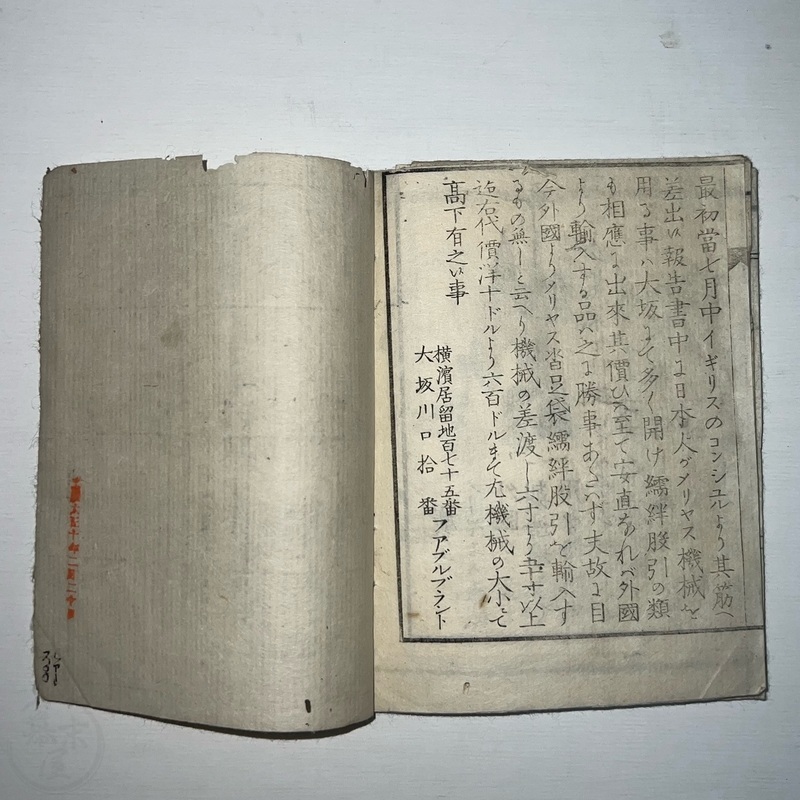 最初當七月中イギリスのコンシユルより其筋へ
差出い報告書中に日本人がメリヤス機械を
用る事ハ大坂にて多く開け繻絆股引の類
も相應に出來其價ひへ至て安直なれバ外國
より輸入する品ハ之に勝事あたはず夫故に目
今外國よりメリヤス沓足袋繻絆股引を輸入す
るもの無しと云へり機械の差渡し六寸より 以上
迄右代價洋十ドルより六百ドルまて尤機械の大小にて
高下有之い事
横濱居留地百七十五番
大坂川口拾番
フアブルブラント